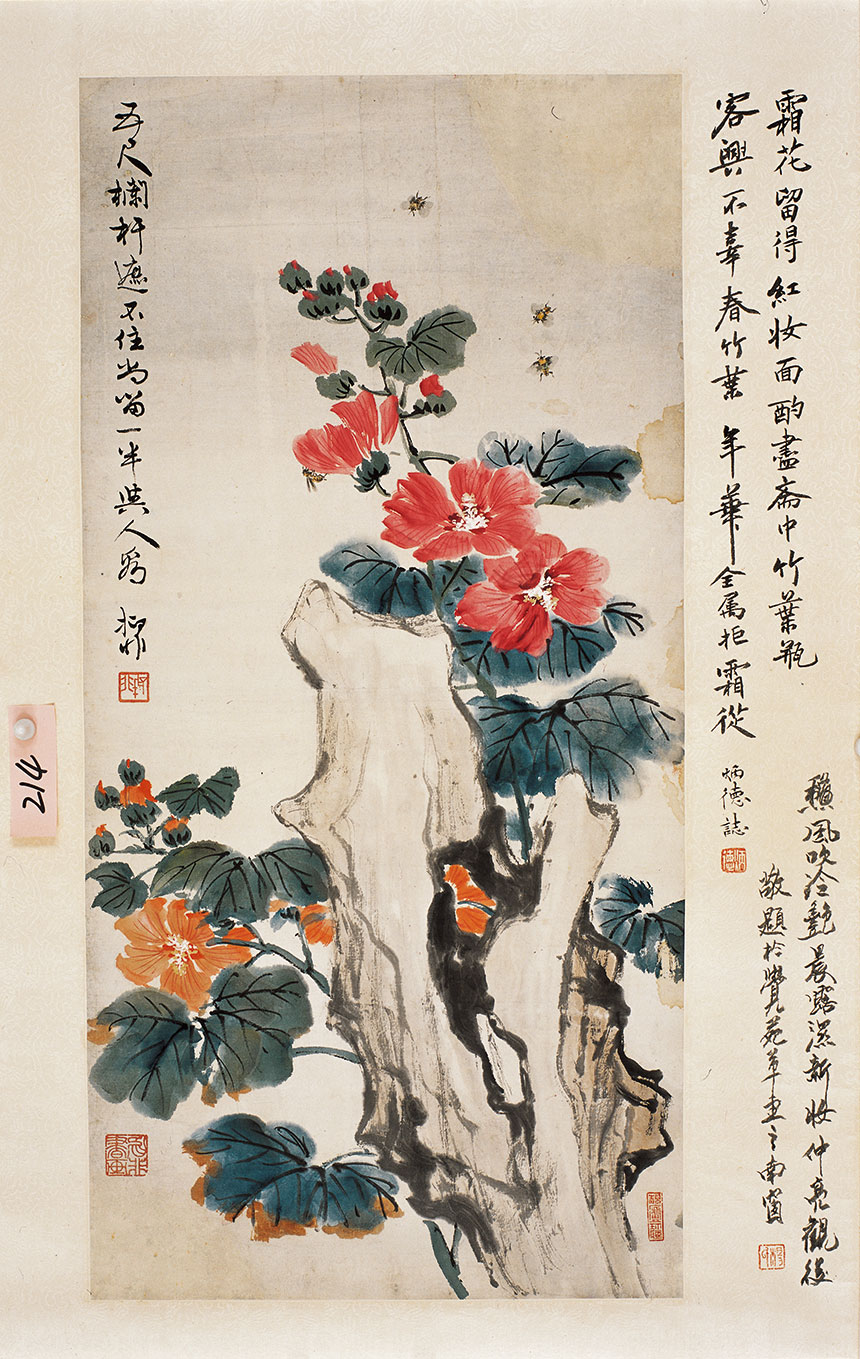 霜花留得紅妝面酌盡斋中竹葉瓶
客興不辜春竹葉年華全属拒霜從
炳德誌
風吹冷艷晨露濕新妝仲亮觀後
敬題於覺苑草堂之南窗
五尺欄杆遮不住尚留一半與人看
214